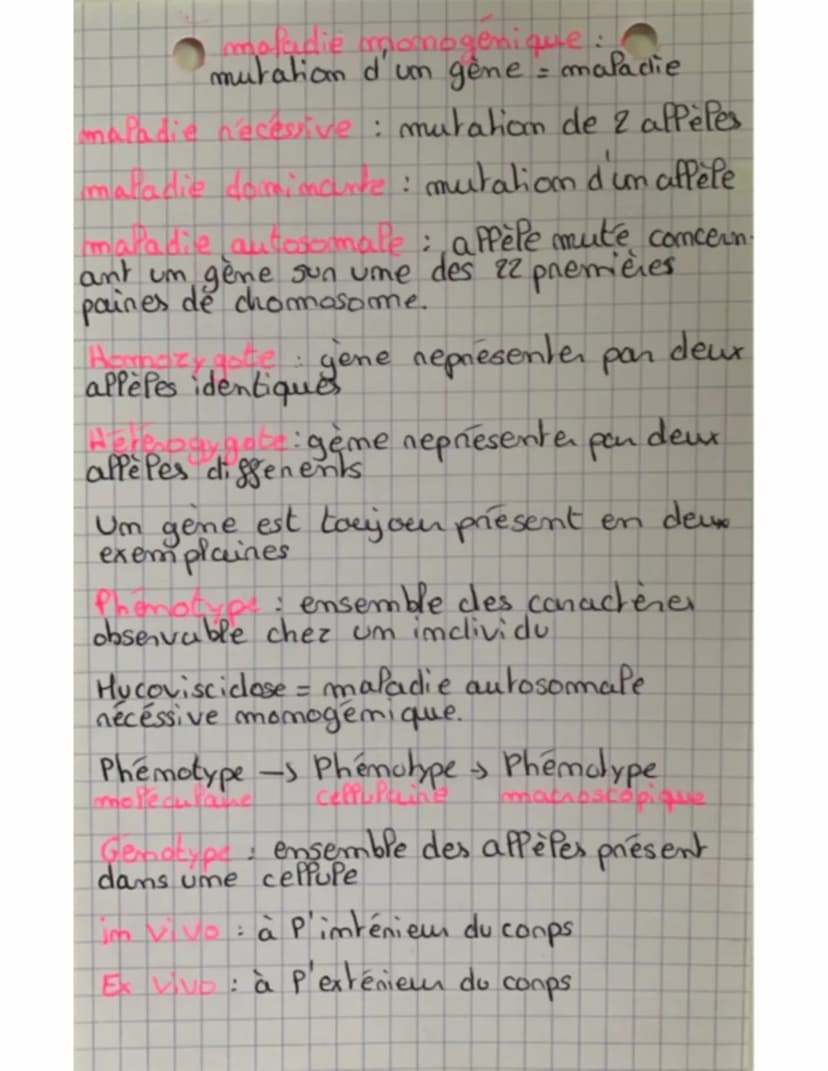 maladie monogénique :
mutation d'un gène = maladie
maladie récéssive : mutation de 2 allèles
maladie dominante : mutation d'un allèle
maladie autosomale : allèle muté concern-
ant un gène sur une des 22 premières
paires de chomosome.
Homozygote : gène représenter par deux
allèles identiques
Hétérogygote : gène représenter par deux
allèles différents
Un gène est toujour présent en deux
exemplaires
Phénotype : ensemble des caractères
observable chez un individu
Mucoviscidose = maladie autosomale
récéssive monogénique.
Phénotype → Phénotype → Phénotype
moléculaire cellulaire macroscopique
Génotype : ensemble des allèles présent
dans une cellule
in vivo : à l'intérieur du corps
Ex vivo : à l'extérieur du corps